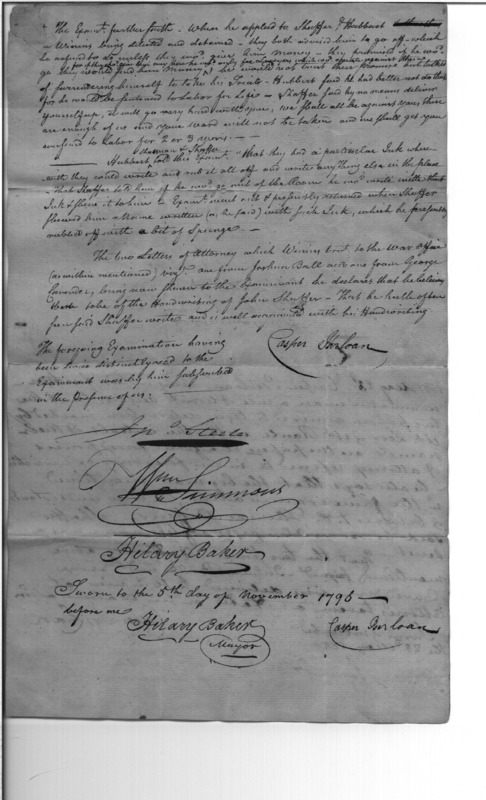 The Examt. further saith. When he applied to Shaffer & Hubbart
Winens being detected and detained - they both advised him to go off - which
he refused to do unless they wou'd give him money - they promised if he wou'd
go they would send him Money
of surrendering himself to take his Trial - Hubbert said he had better not do that
for he would be sentenced to Labor for Life - Shaffer said by no means deliver
yourself up, it will go very hard with you, we shall all be against you, there
are enough of us and your word will not be taken and we shall get you
confined to Labor for 2 or 3 years. -
Hubbart told this Examt. that they had a particular Ink where
with they could write and rub it all off and write anything else in the place
- that Shaffer told him if he wou'd go out of the Room he wou'd write with that
Ink & shew it to him & Examt. went out & presently returned when Shaffer
shewed him a Name written (as he said) with such Ink, which he presently
rubbed off with a bit of Spunge -
The two Letters of Attorney which Winens sent to the War Office
(as within mentioned) viz: one from Joshua Ball and one from George
being now shewn to the Examinant he declares that he believes
to be of the Handwriting of John Shaffer - That he hath often
seen said Shaffer write and is well acquainted with his Handwriting
The foregoing Examination having
been twice distinctly read to the
Examinant was by him Subscribed
in the Presence of us:
Casper Iserloan
Jno Steele
Wm Simmons
Hilary Baker
Sworn to the 5th day of November 1796 -
before me
Hilary Baker
Mayor
Casper Iserloan